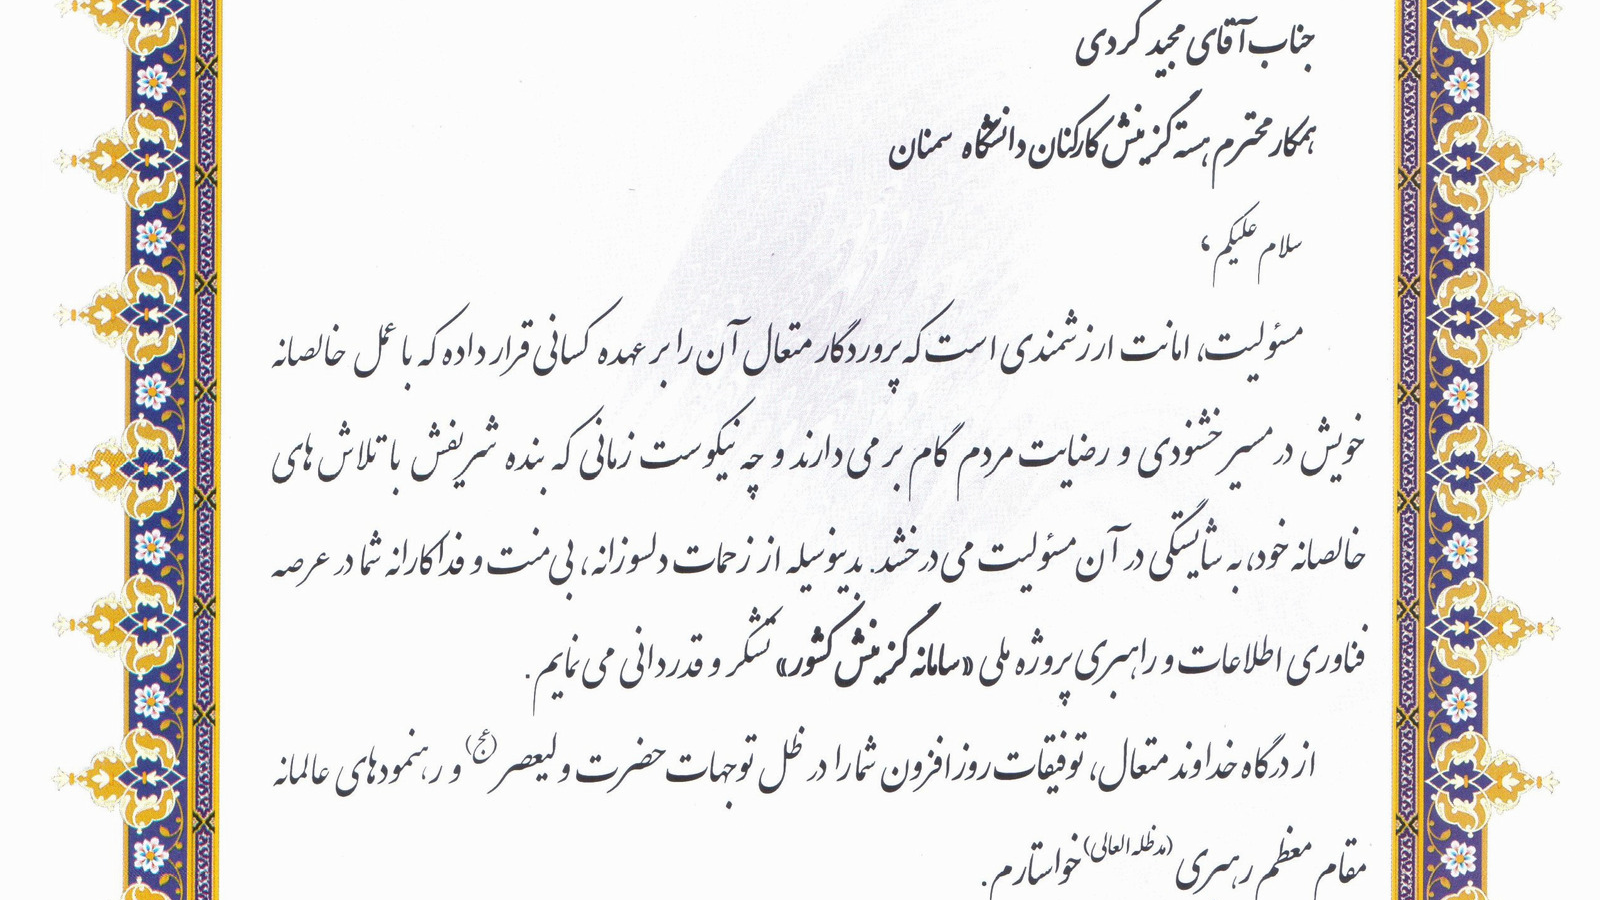 جناب آقای مجید کردی
همکار محترم هسته گزینش کارکنان دانشگاه سمنان
سلام علیکم،
مسئولیت، امانت ارزشمندی است که پروردگار متعال آن را بر عهده کسانی قرار داده که با عمل خالصانه
خویش در مسیر خشنودی و رضایت مردم گام بر می دارند و چه نیکوست زمانی که بنده شریفش با تلاش های
خالصانه خود، به شایستگی در آن مسئولیت می درخشد. بدینوسیله از زحمات دلسوزانه، بی منت و فداکارانه شما در عرصه
فناوری اطلاعات و راهبری پروژه ملی «سامانه گزینش کشور» تشکر و قدردانی می نمایم.
از درگاه خداوند متعال، توفیقات روزافزون شما را در ظل توجهات حضرت ولیعصر (عج) و رهنمودهای عالمانه
مقام معظم رهبری (مدظله العالی) خواستارم.